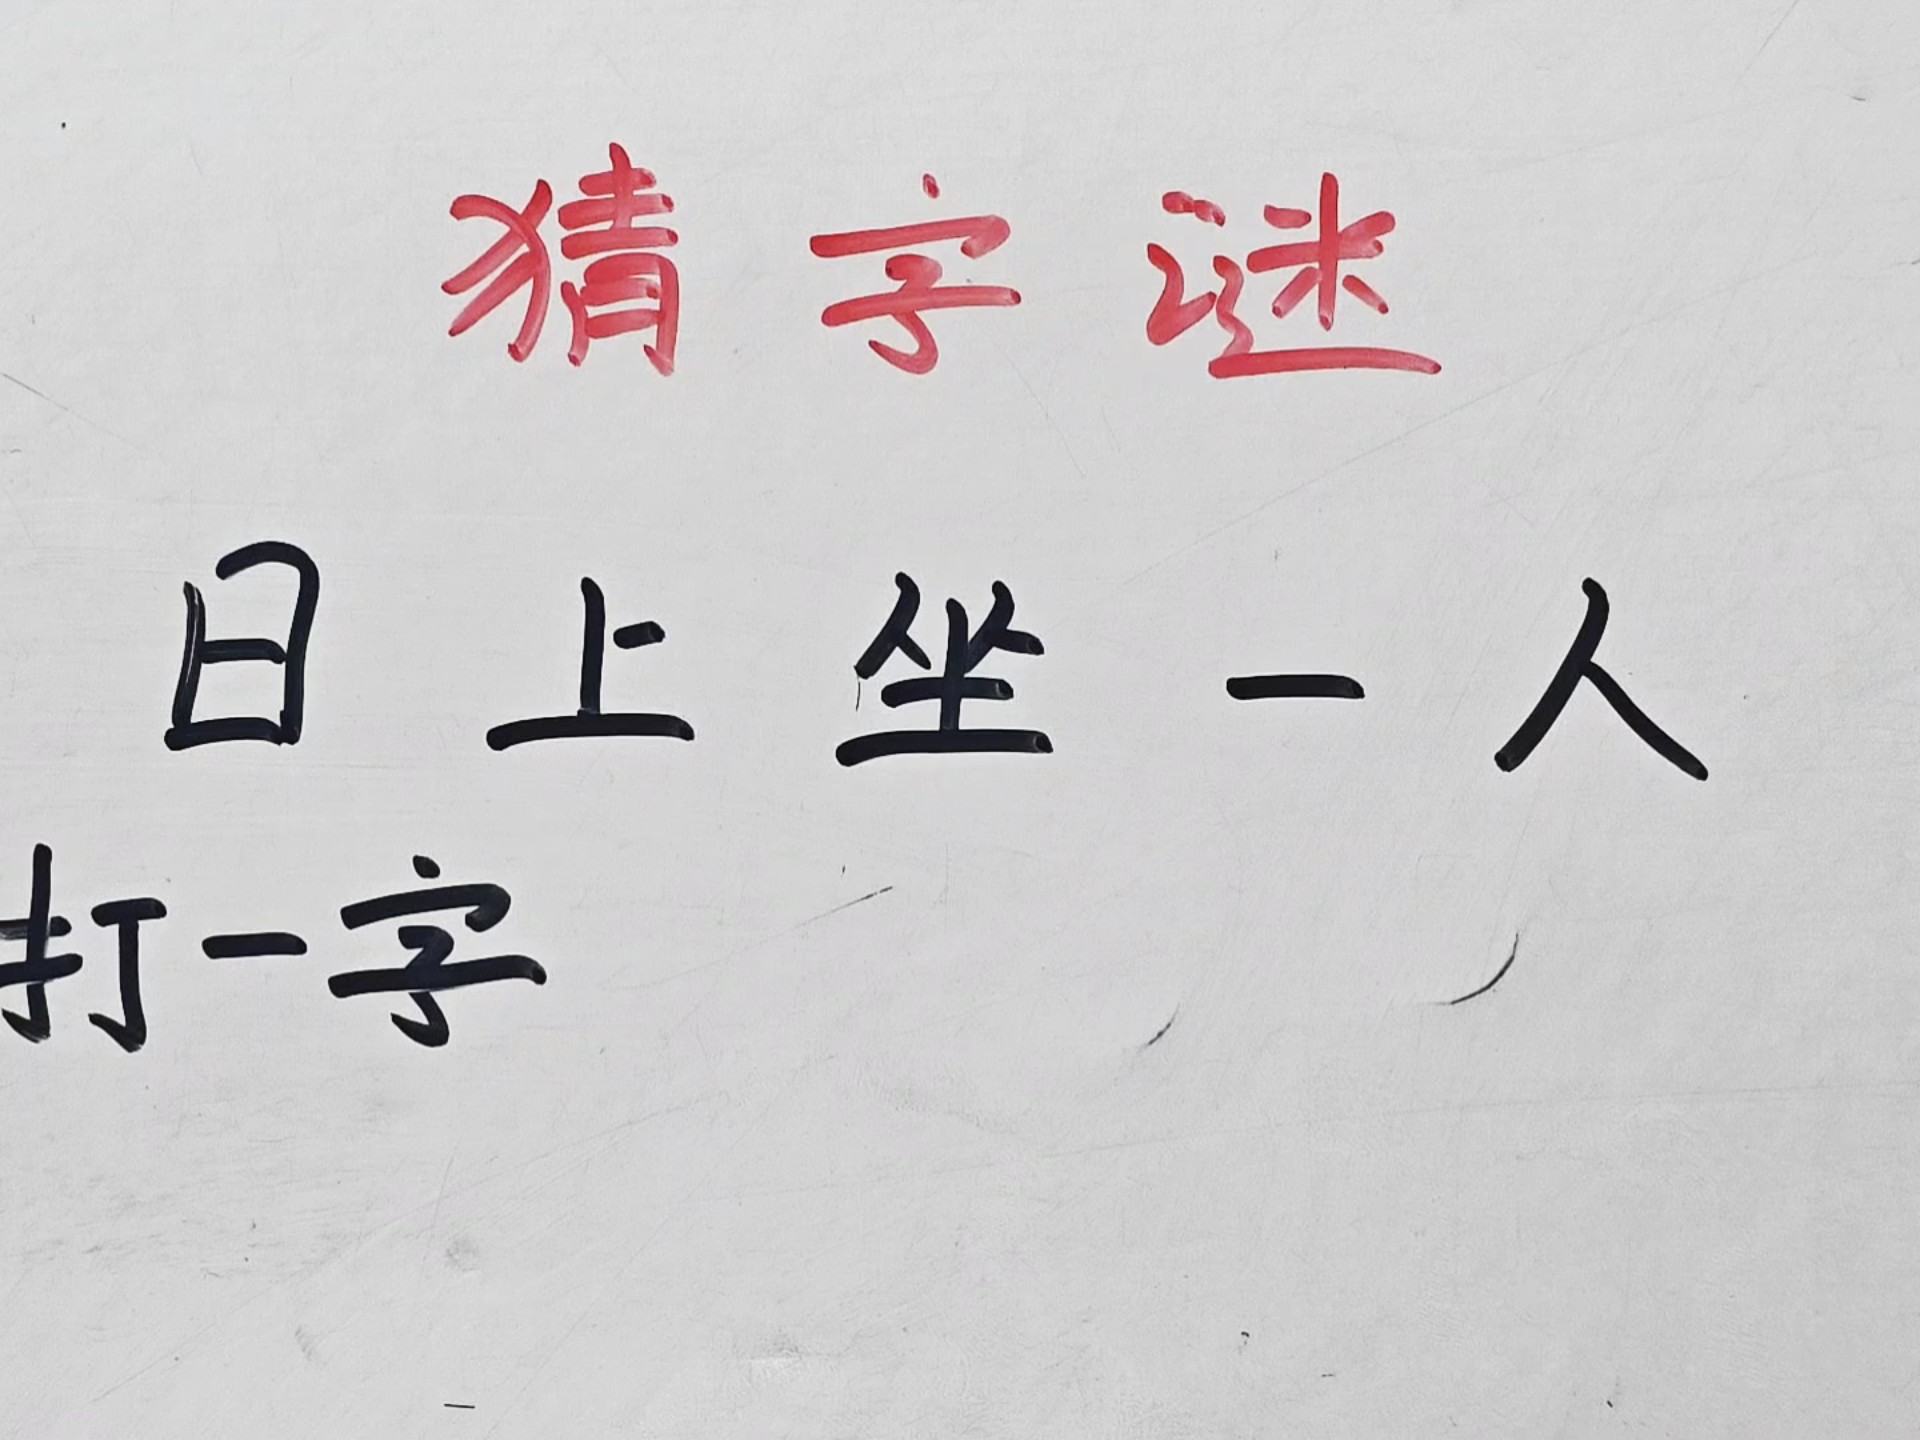 猜字谜
日上坐一人
打一字